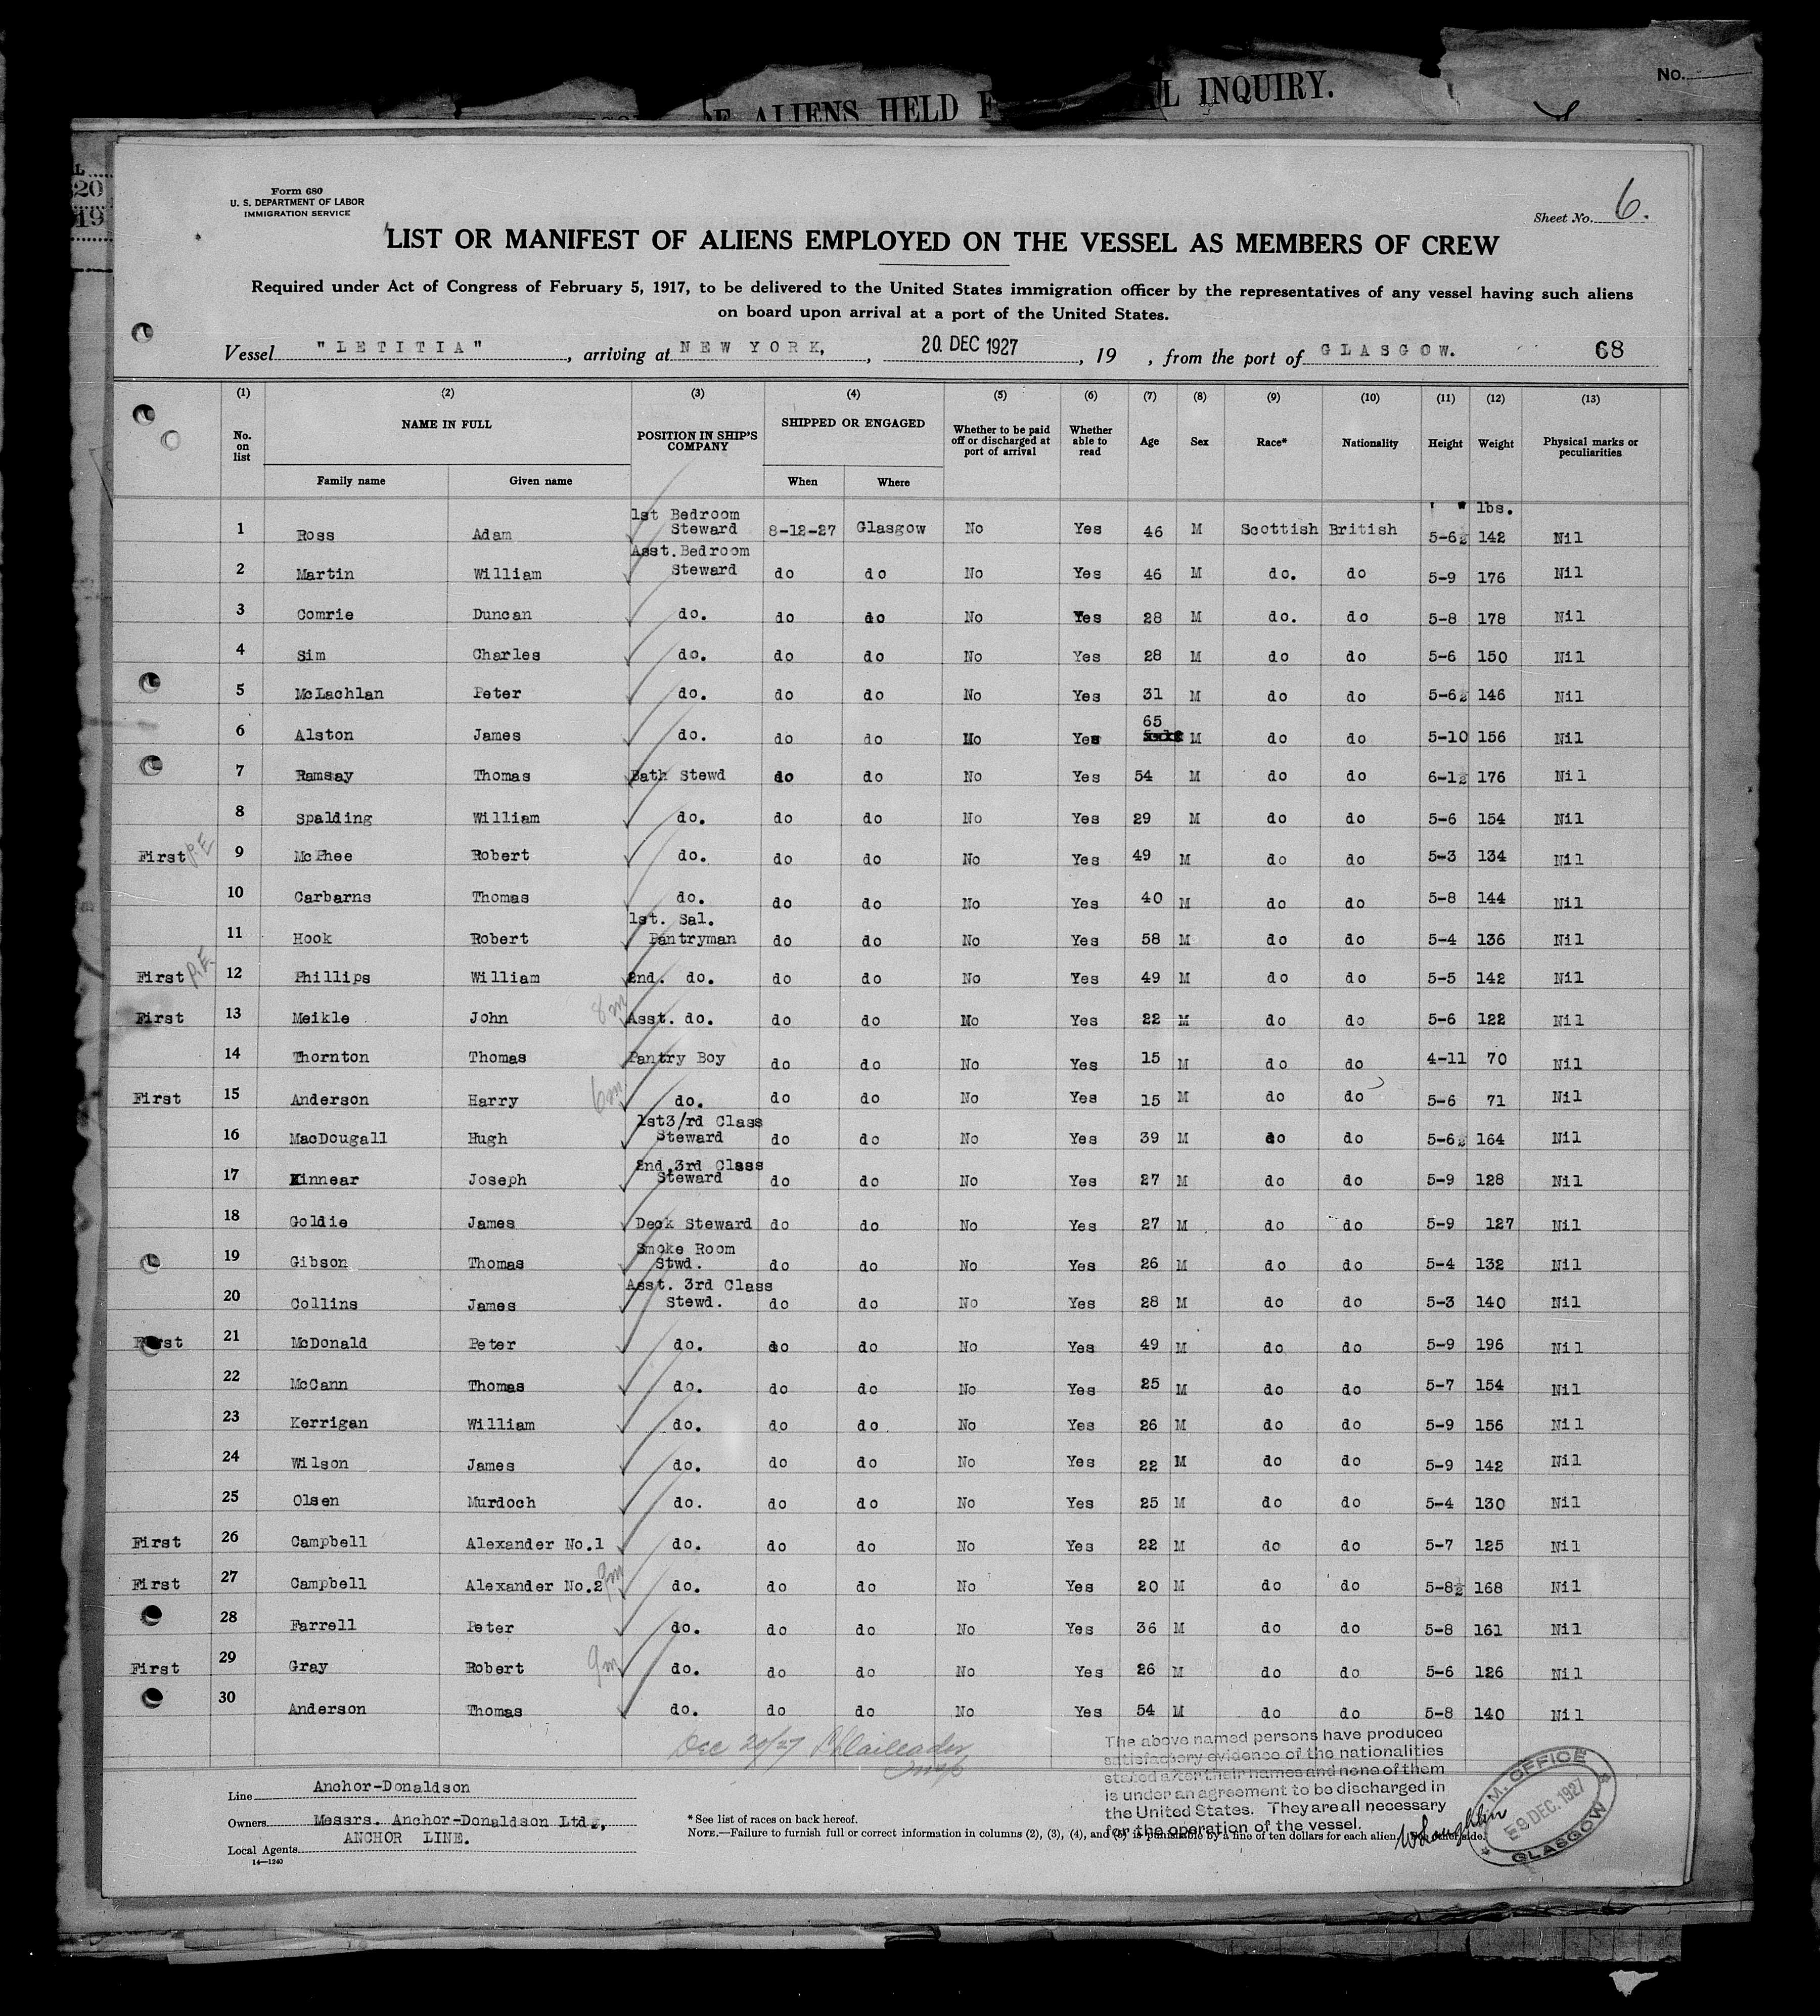 E ALIENS HELD F L INQUIRY.
No.
20
19
Form 680
U. S. DEPARTMENT OF LABOR
IMMIGRATION SERVICE
Sheet No. 6.
LIST OR MANIFEST OF ALIENS EMPLOYED ON THE VESSEL AS MEMBERS OF CREW
Required under Act of Congress of February 5, 1917, to be delivered to the United States immigration officer by the representatives of any vessel having such aliens
on board upon arrival at a port of the United States.
Vessel "LETITIA", arriving at NEW YORK, , 20 DEC 1927, 19 , from the port of GLASGOW. 68
(1) (2) (3) (4) (5) (6) (7) (8) (9) (10) (11) (12) (13)
No. on list NAME IN FULL POSITION IN SHIP'S COMPANY SHIPPED OR ENGAGED Whether to be paid off or discharged at port of arrival Whether able to read Age Sex Race* Nationality Height Weight Physical marks or peculiarities
Family name Given name When Where
' " lbs.
1 Ross Adam 1st Bedroom Steward 8-12-27 Glasgow No Yes 46 M Scottish British 5-6½ 142 Nil
2 Martin William Asst. Bedroom Steward do do No Yes 46 M do. do 5-9 176 Nil
3 Comrie Duncan do. do do No Yes 28 M do. do 5-8 178 Nil
4 Sim Charles do. do do No Yes 28 M do do 5-6 150 Nil
5 McLachlan Peter do. do do No Yes 31 M do do 5-6½ 146 Nil
6 Alston James do. do do No Yes 65 M do do 5-10 156 Nil
7 Ramsay Thomas Bath Stewd do do No Yes 54 M do do 6-1½ 176 Nil
8 Spalding William do. do do No Yes 29 M do do 5-6 154 Nil
First P.E 9 McPhee Robert do. do do No Yes 49 M do do 5-3 134 Nil
10 Carbarns Thomas do. do do No Yes 40 M do do 5-8 144 Nil
11 Hook Robert 1st. Sal. Pantryman do do No Yes 58 M do do 5-4 136 Nil
First P.E. 12 Phillips William 2nd. do. do do No Yes 49 M do do 5-5 142 Nil
First 13 Meikle John 8m Asst. do. do do No Yes 22 M do do 5-6 122 Nil
14 Thornton Thomas Pantry Boy do do No Yes 15 M do do 4-11 70 Nil
First 15 Anderson Harry 6m do. do do No Yes 15 M do do 5-6 71 Nil
16 MacDougall Hugh 1st3/rd Class Steward do do No Yes 39 M do do 5-6½ 164 Nil
17 Kinnear Joseph 2nd,3rd Class Steward do do No Yes 27 M do do 5-9 128 Nil
18 Goldie James Deck Steward do do No Yes 27 M do do 5-9 127 Nil
19 Gibson Thomas Smoke Room Stwd. do do No Yes 26 M do do 5-4 132 Nil
20 Collins James Asst. 3rd Class Stewd. do do No Yes 28 M do do 5-3 140 Nil
First 21 McDonald Peter do. do do No Yes 49 M do do 5-9 196 Nil
22 McCann Thomas do. do do No Yes 25 M do do 5-7 154 Nil
23 Kerrigan William do. do do No Yes 26 M do do 5-9 156 Nil
24 Wilson James do. do do No Yes 22 M do do 5-9 142 Nil
25 Olsen Murdoch do. do do No Yes 25 M do do 5-4 130 Nil
First 26 Campbell Alexander No.1 do. do do No Yes 22 M do do 5-7 125 Nil
First 27 Campbell Alexander No.2 9m do. do do No Yes 20 M do do 5-8½ 168 Nil
28 Farrell Peter do. do do No Yes 36 M do do 5-8 161 Nil
First 29 Gray Robert 9m do. do do No Yes 26 M do do 5-6 126 Nil
30 Anderson Thomas do. do do No Yes 54 M do do 5-8 140 Nil
Dec 20/27
The above named persons have produced
satisfactory evidence of the nationalities
stated after their names and none of them
is under an agreement to be discharged in
the United States. They are all necessary
for the operation of the vessel.
M. OFFICE
9 DEC. 1927
GLASGOW
Line Anchor-Donaldson
Owners Messrs. Anchor-Donaldson Ltd.,
Local Agents ANCHOR LINE.
14—1240
* See list of races on back hereof.
NOTE.—Failure to furnish full or correct information in columns (2), (3), (4), and (5) is punishable by a fine of ten dollars for each alien. See other side.